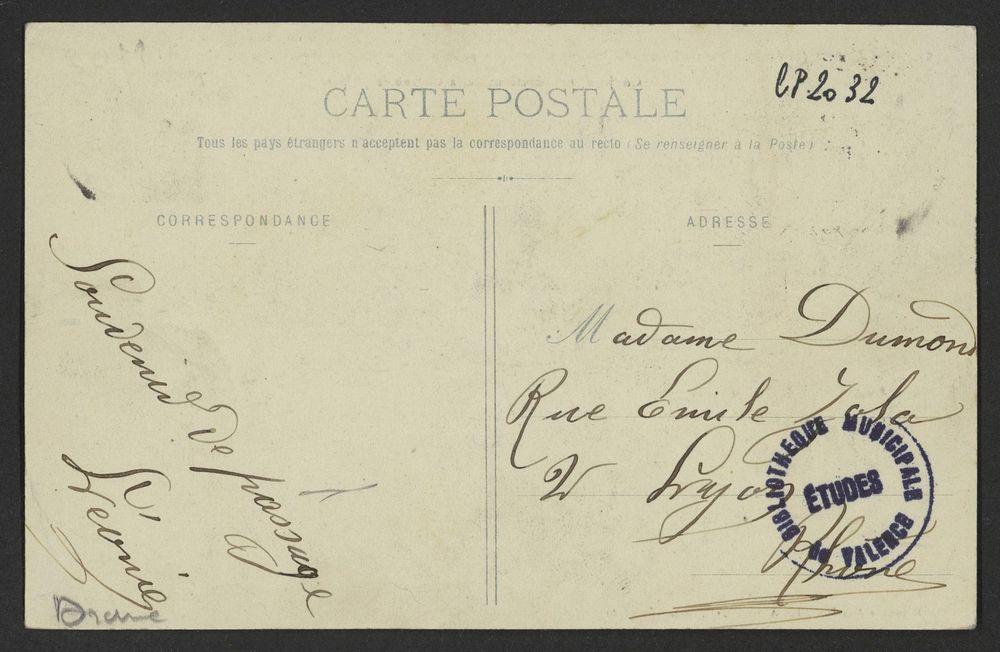 CP 20 32
CARTE POSTALE
Tous les pays étrangers n'acceptent pas la correspondance au recto (Se renseigner à la Poste)
CORRESPONDANCE
Souvenir de passage
Léonie
Drome
ADRESSE
Madame Dumond
Rue Emile Zola
Lyon
Rhône
BIBLIOTHEQUE MUNICIPALE
ÉTUDES
DE VALENCE